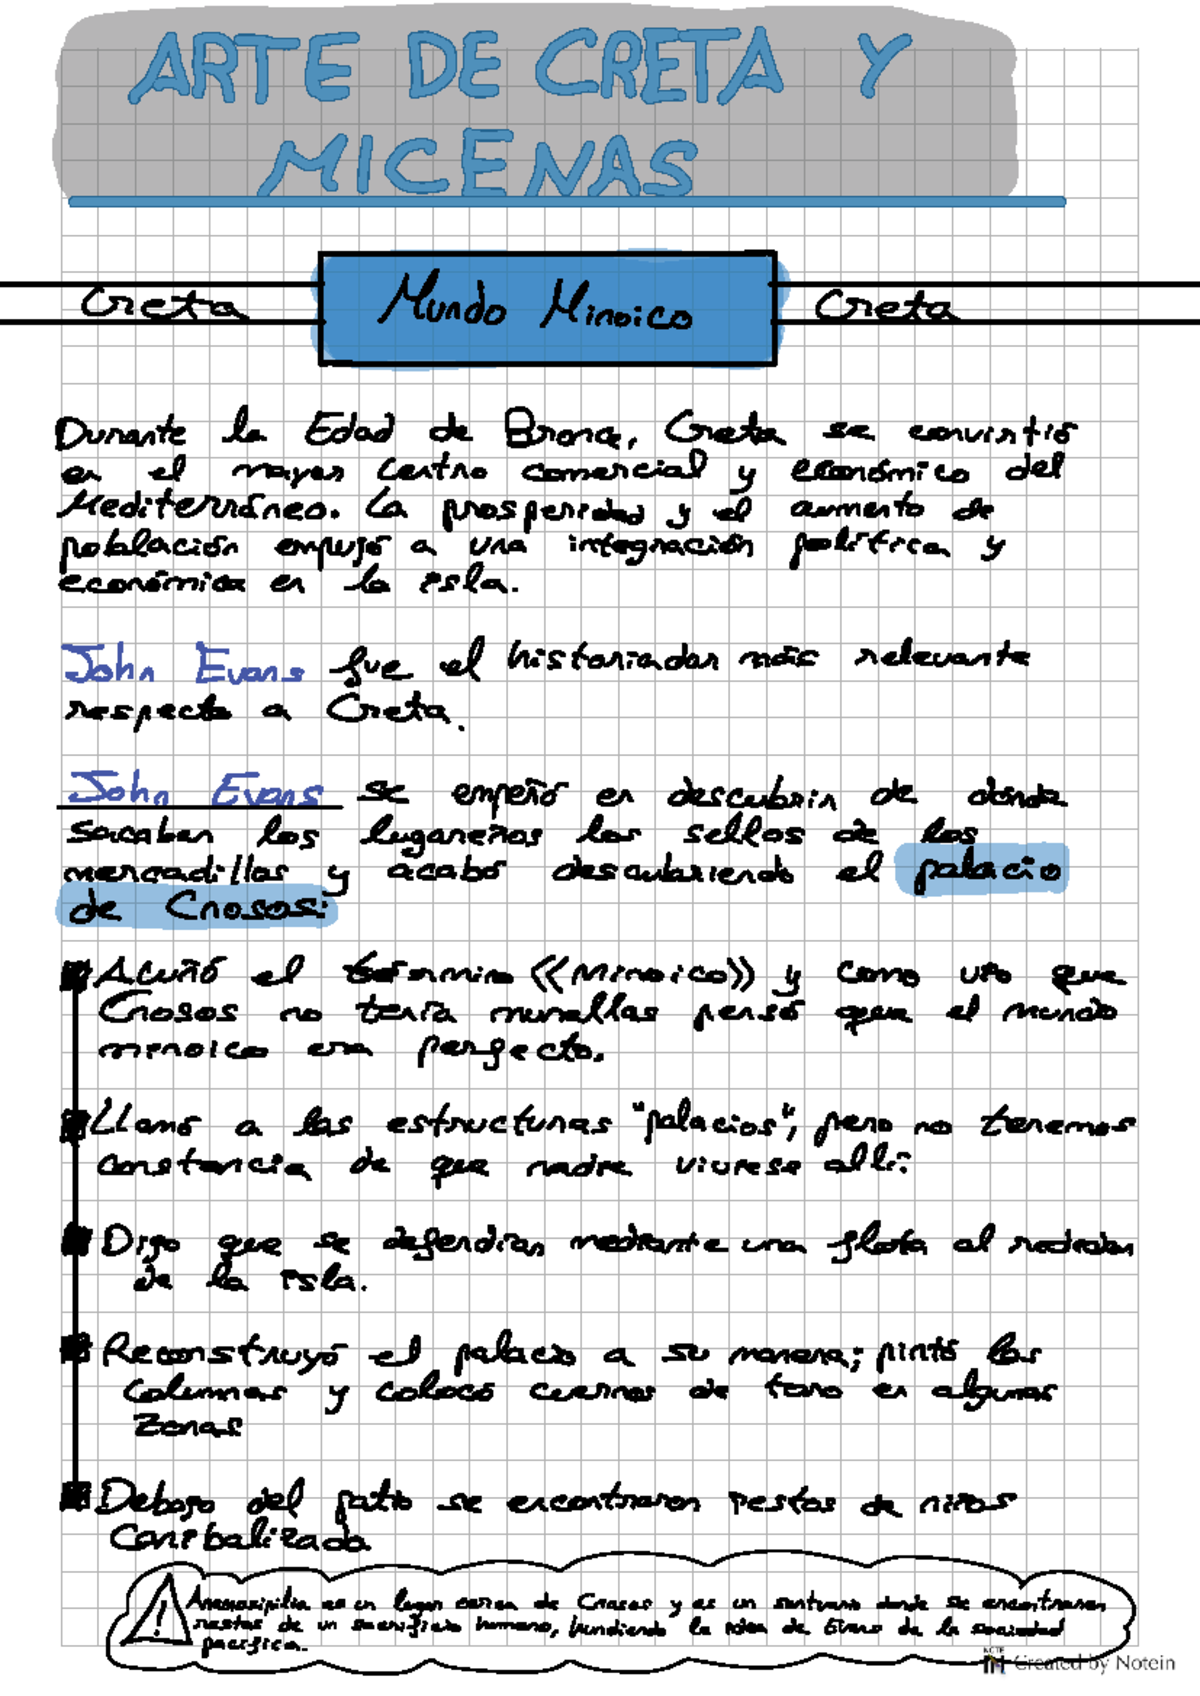 ARTE DE CRETA Y
MICENAS
Creta Mundo Minoico Creta
Durante la Edad de Bronce, Creta se convirtió
en el mayor centro comercial y económico del
Mediterráneo. La prosperidad y el aumento de
población empujó a una integración política y
económica en la isla.
John Evans fue el historiador más relevante
respecto a Creta.
John Evans se empeñó en descubrir de dónde
sacaban los lugareños los sellos de los
mercadillos y acabó descubriendo el palacio
de Cnosos:
Acuñó el término «Minoico» y como vio que
Cnosos no tenía murallas pensó que el mundo
minoico era perfecto.
Llamó a las estructuras "palacios", pero no tenemos
constancia de que nadie viviese allí.
Dijo que se defendían mediante una flota al rededor
de la isla.
Reconstruyó el palacio a su manera; pintó las
columnas y colocó cuernos de toro en algunas
zonas
Debajo del patio se encontraron restos de niños
Canibalizado
es un lugar cerca de Cnosos y es un santuario donde se encontraron
restos de un sacrificio humano, hundiendo la idea de Evans de la sociedad
pacífica.
Created by Notein